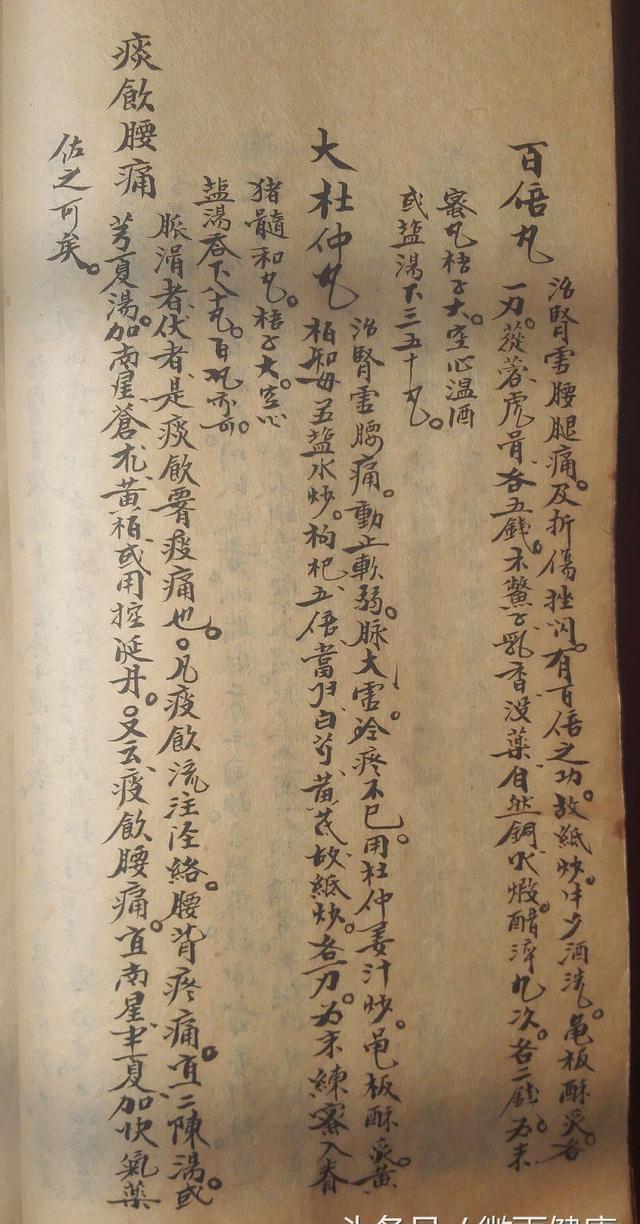 百倍丸
治腎虛腰腿痛。及折傷挫闪。有百倍之功。故紙炒。牛夕酒洗。龟板酥炙。各
一刃。蓯蓉虎骨各五錢。木鱉子乳香没藥自然銅火煅醋淬九次。各二錢。为末
密丸梧子大。空心温酒
或盐湯下三五十丸。
大杜仲丸
治腎虛腰痛。動止軟弱。脉大虛。冷疼不已。用杜仲姜汁炒。龟板酥炙。黄
柏知母盐水炒。枸杞五倍當归白芍黄芪故紙炒。各一刃。为末練密入春
猪髓和丸。梧子大。空心
盐湯吞下八十丸。百丸亦可。
痰飲腰痛
脈滑者伏者是痰飲腎痰痛也。凡痰飲流注泾絡。腰背疼痛。宜二陳湯或
芎夏湯。加南星蒼朮黄柏或用控涎丹。又云痰飲腰痛。宜南星半夏加快氣藥
佐之可矣。
头条号/微雨健康